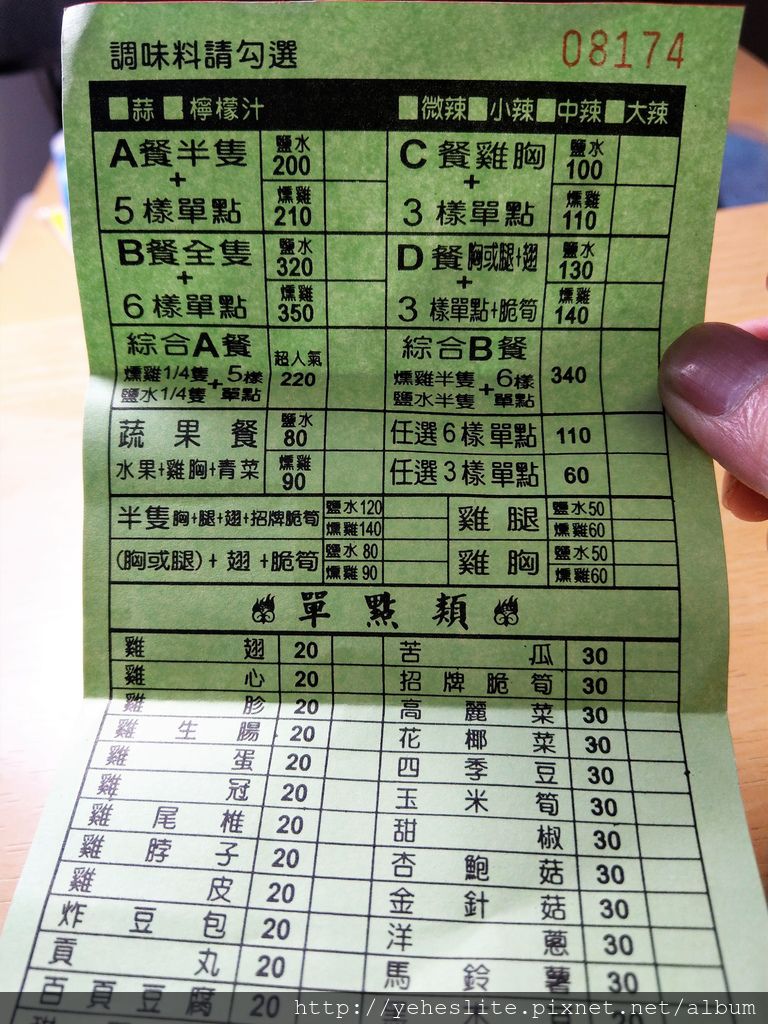 調味料請勾選 08174
蒜 檸檬汁 微辣 小辣 中辣 大辣
A餐半隻 + 5樣單點 鹽水 200 燻雞 210
C餐雞胸 + 3樣單點 鹽水 100 燻雞 110
B餐全隻 + 6樣單點 鹽水 320 燻雞 350
D餐胸或腿+翅 + 3樣單點+脆筍 鹽水 130 燻雞 140
綜合A餐 燻雞1/4隻 鹽水1/4隻 + 5樣單點 超人氣 220
綜合B餐 燻雞半隻 鹽水半隻 + 6樣單點 340
蔬果餐 水果+雞胸+青菜 鹽水 80 燻雞 90
任選6樣單點 110
任選3樣單點 60
半隻胸+腿+翅+招牌脆筍 鹽水120 燻雞140
雞腿 鹽水50 燻雞60
(胸或腿)+翅+脆筍 鹽水80 燻雞90
雞胸 鹽水50 燻雞60
單點類
雞翅 20 苦瓜 30
雞心 20 招牌脆筍 30
雞胗 20 高麗菜 30
雞生腸 20 花椰菜 30
雞蛋 20 四季豆 30
雞冠 20 玉米筍 30
雞尾椎 20 甜椒 30
雞脖子 20 杏鮑菇 30
雞皮 20 金針菇 30
炸豆包 20 洋蔥 30
貢丸 20 馬鈴薯 30
百頁豆腐 20
http://yeheslite.pixnet.net/album